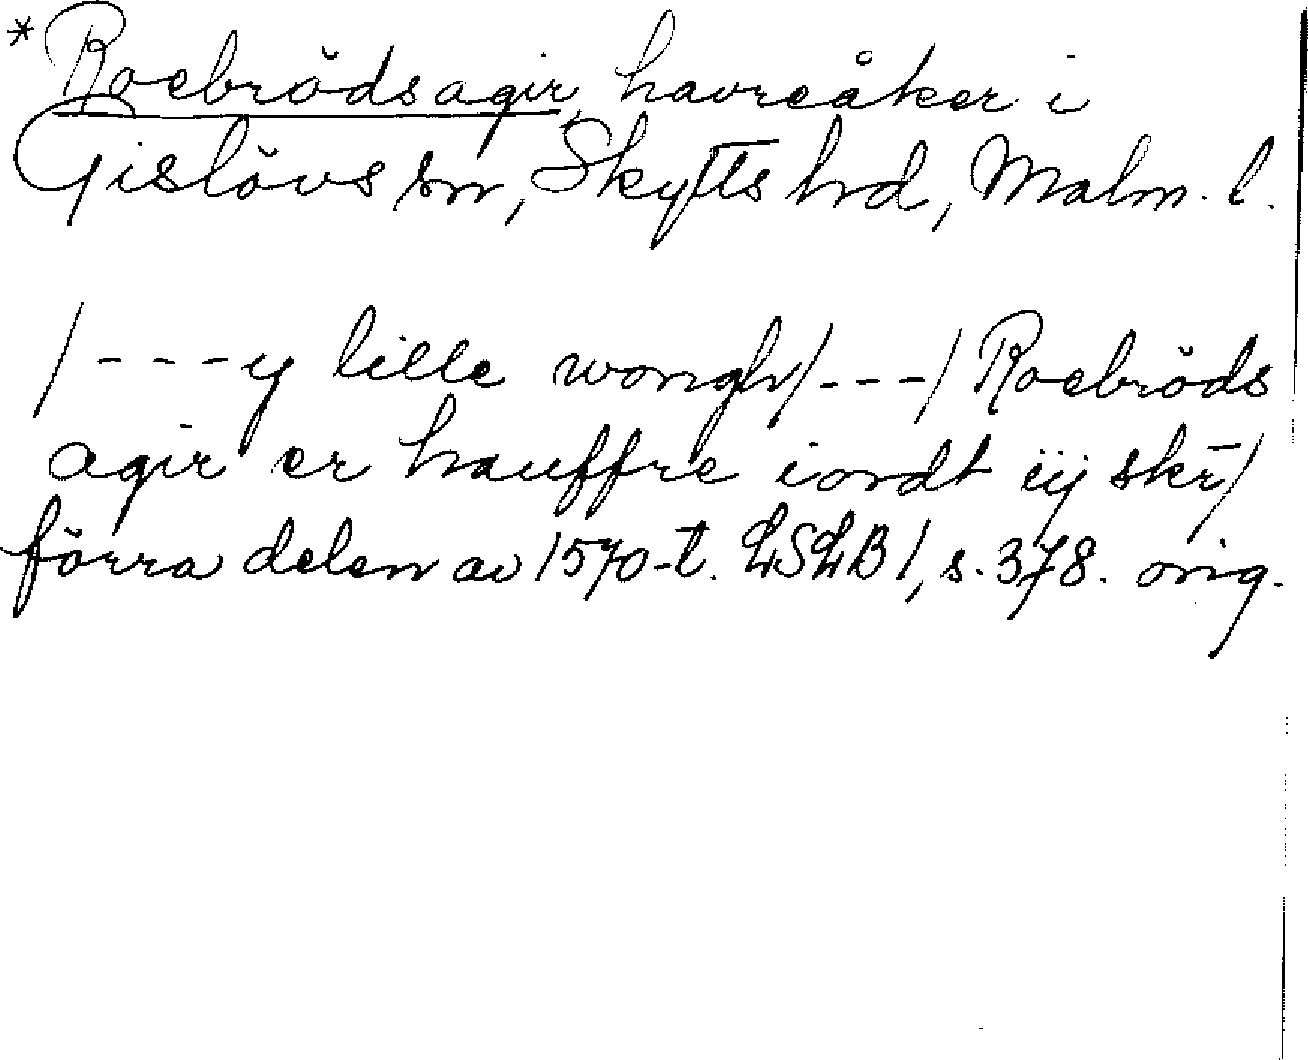 *Roebrödsagir, havreåker i
Gislövs sn, Skytts hd, Malm. l.
/---y lille wongh/---/ Roebröds
agir er hauffre iordt iij skr̄/
förra delen av 1570-t. LSLB 1, s. 378. orig.